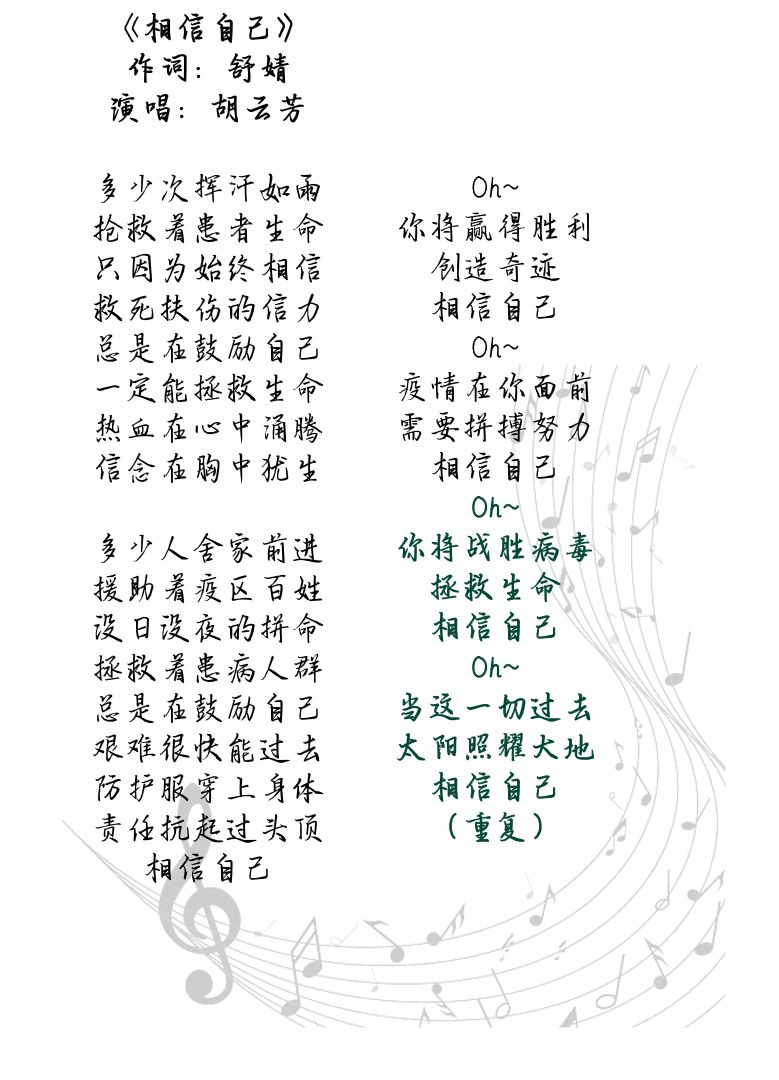 《相信自己》
作词：舒婧
演唱：胡云芳
多少次挥汗如雨
抢救着患者生命
只因为始终相信
救死扶伤的信力
总是在鼓励自己
一定能拯救生命
热血在心中涌腾
信念在胸中犹生
多少人舍家前进
援助着疫区百姓
没日没夜的拼命
拯救着患病人群
总是在鼓励自己
艰难很快能过去
防护服穿上身体
责任抗起过头顶
相信自己
Oh~
你将赢得胜利
创造奇迹
相信自己
Oh~
疫情在你面前
需要拼搏努力
相信自己
Oh~
你将战胜病毒
拯救生命
相信自己
Oh~
当这一切过去
太阳照耀大地
相信自己
（重复）